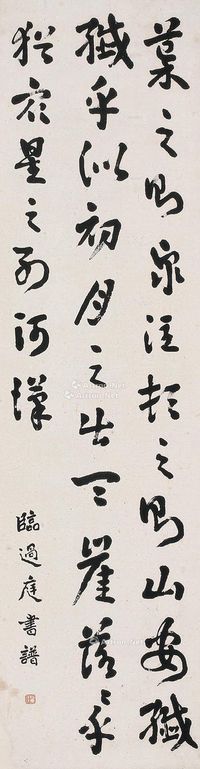 導之則泉注頓之則山安纖
纖乎似初月之出天崖落々乎
猶眾星之列河漢
臨過庭書譜